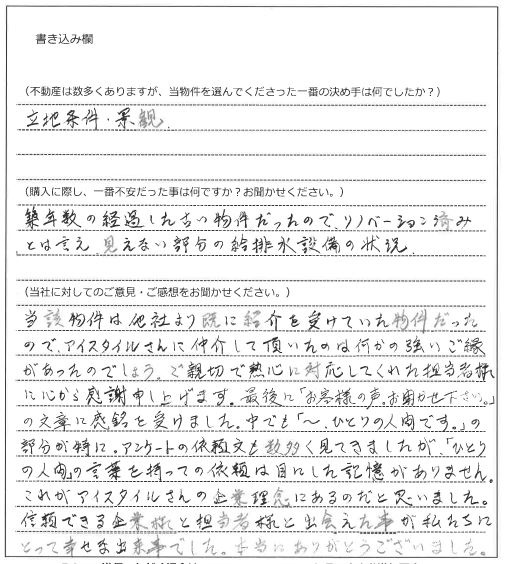 書き込み欄
(不動産は数多くありますが、当物件を選んでくださった一番の決め手は何でしたか？)
立地条件・景観.
(購入に際し、一番不安だった事は何ですか？お聞かせください。)
築年数の経過した古い物件だったので、リノベーション済み
とは言え、見えない部分の給排水設備の状況
(当社に対してのご意見・ご感想をお聞かせください。)
当該物件は他社より既に紹介を受けていた物件だった
ので、アイスタイルさんに仲介して頂いたのは何かの強いご縁
があったのでしょう。ご親切で熱心に対応してくれた担当者様
に心から感謝申し上げます。最後に「お客様の声、お聞かせ下さい。」
の文章に感銘を受けました。中でも「〜、ひとりの人間です。」の
部分が特に。アンケートの依頼文も数多く見てきましたが、「ひとり
の人間」の言葉を持っての依頼は目にした記憶がありません。
これがアイスタイルさんの企業理念にあるのだと思いました。
信頼できる企業様と担当者様と出会えた事が私たちに
とって幸せな出来事でした。本当にありがとうございました。